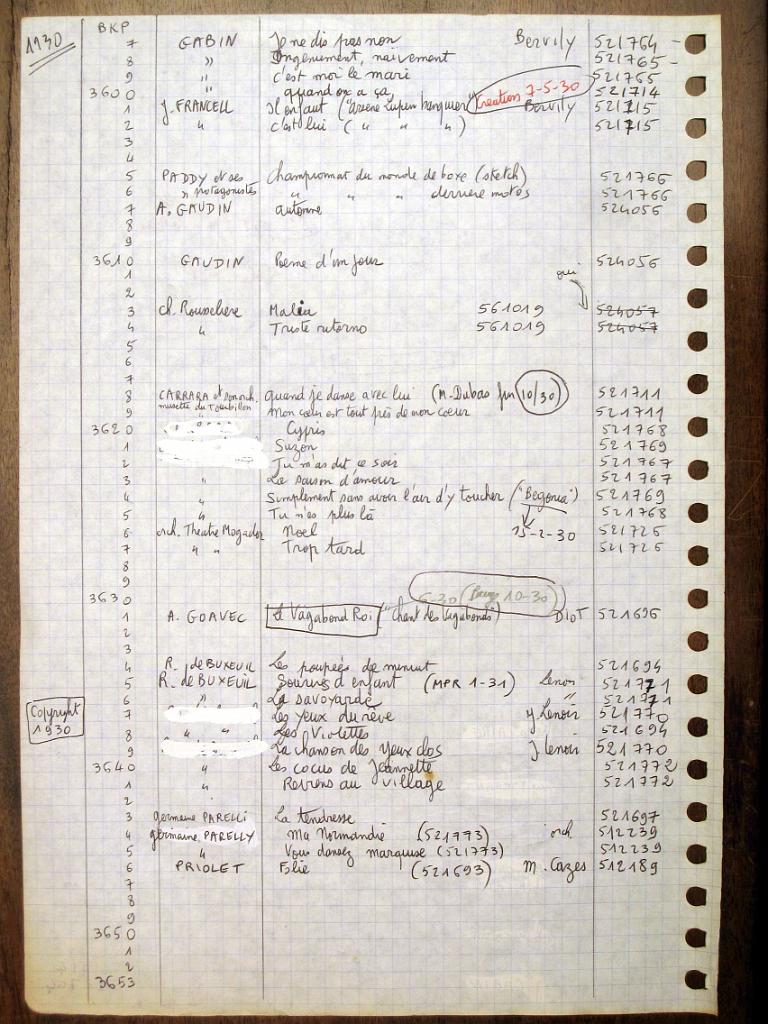 1930 BKP
7 GABIN Je ne dis pas non Bervily 521764 -
8 " Ingenuement, naivement 521765 -
9 " c'est moi le mari 521765
3600 " quand on a ça 521714
1 J. FRANCELL Il en faut ("Arsène Lupin banquier") Creation 7-5-30 Bervily 521715
2 " c'est lui ( " " " ) 521715
3
4
5 PADDY et ses Championnat du monde de boxe (sketch) 521766
6 " protagonistes " " " derniere motos 521766
7 A. GAUDIN automne 524056
8
9
3610 GAUDIN Poeme d'un jour 524056
1 oui
2
3 ch. Rousseliere Malia 561019 524057
4 " Triste ritorno 561019 524057
5
6
7
8 CARRARA et son orch. quand je danse avec lui (M. Dubas 10/30) 521711
9 musette du Tourbillon Mon cœur est tout près de mon coeur 521711
3620 Cypris 521768
1 Suzon 521769
2 Tu m'as dit ce soir 521767
3 " La saison d'amour 521767
4 " Simplement sans avoir l'air d'y toucher ("Begonia") 521769
5 " Tu n'es plus là 521768
6 orch. Theatre Mogador Noel 15-2-30 521725
7 " " Trop tard 521725
8
9
3630 6-30 (10-30)
1 A. GOAVEC Le Vagabond Roi ("Chant des Vagabonds") DIOT 521695
2
3
4 R. de BUXEUIL Les poupées de minuit 521694
5 R. de BUXEUIL Sourires d'enfant (MPR 1-31) Lenoir 521771
6 " La savoyarde " 521771
Copyright 1930
7 " Les yeux du rêve J Lenoir 521770
8 " " Les Violettes 521694
9 La chanson des yeux clos J Lenoir 521770
3640 " Les cocus de Jeannette 521772
1 " Reviens au village 521772
2
3 germaine PARELLI La tendresse 521697
4 germaine PARELLY Ma Normandie (521773) orch 512239
5 " Vous dansez marquise (521773) 512239
6 PRIOLET Folie (521693) M. Cazes 512189
7
8
9
3650
1
2
3653